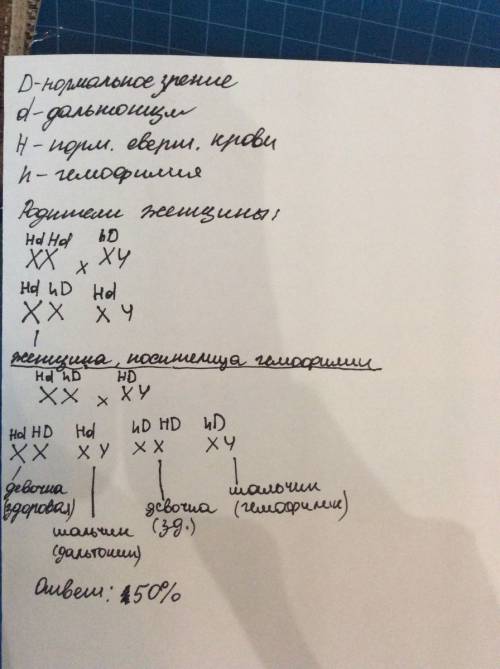 D-нормальное зрение
d-дальтонизм
H - норм. сверт. крови
h - гемофилия
Родители женщины:
Hd Hd hD
XX x XY
Hd hD Hd
X X X Y
женщина, носителица гемофилии
Hd hD HD
XX x XY
Hd HD Hd hD HD hD
X X X Y X X X Y
девочка (здоровая)
мальчик (дальтоник)
девочка (зд.)
мальчик (гемофилик)
Ответ: 50%